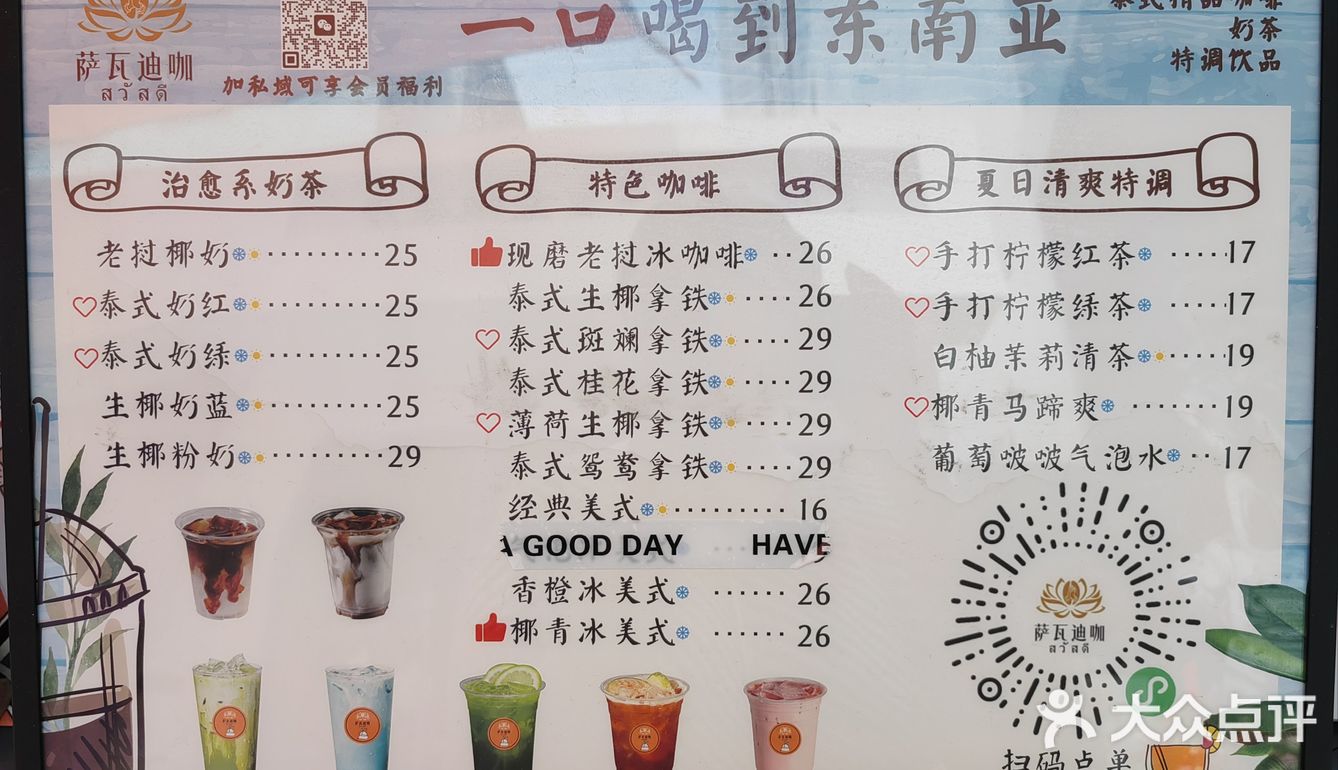 萨瓦迪咖
สวัสดี
加私域可享会员福利
一口喝到东南亚
奶茶
特调饮品
治愈系奶茶
老挝椰奶 25
泰式奶红 25
泰式奶绿 25
生椰奶蓝 25
生椰粉奶 29
特色咖啡
现磨老挝冰咖啡 26
泰式生椰拿铁 26
泰式斑斓拿铁 29
泰式桂花拿铁 29
薄荷生椰拿铁 29
泰式鸳鸯拿铁 29
经典美式 16
A GOOD DAY HAVE
香橙冰美式 26
椰青冰美式 26
夏日清爽特调
手打柠檬红茶 17
手打柠檬绿茶 17
白柚茉莉清茶 19
椰青马蹄爽 19
葡萄啵啵气泡水 17
萨瓦迪咖
สวัสดี
扫码点单
大众点评